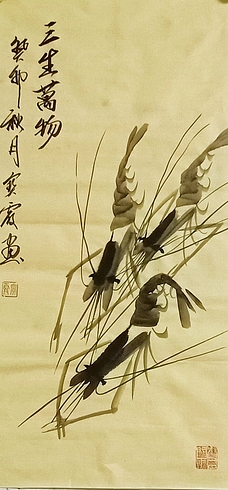 三生萬物
癸卯秋月寶霞畫